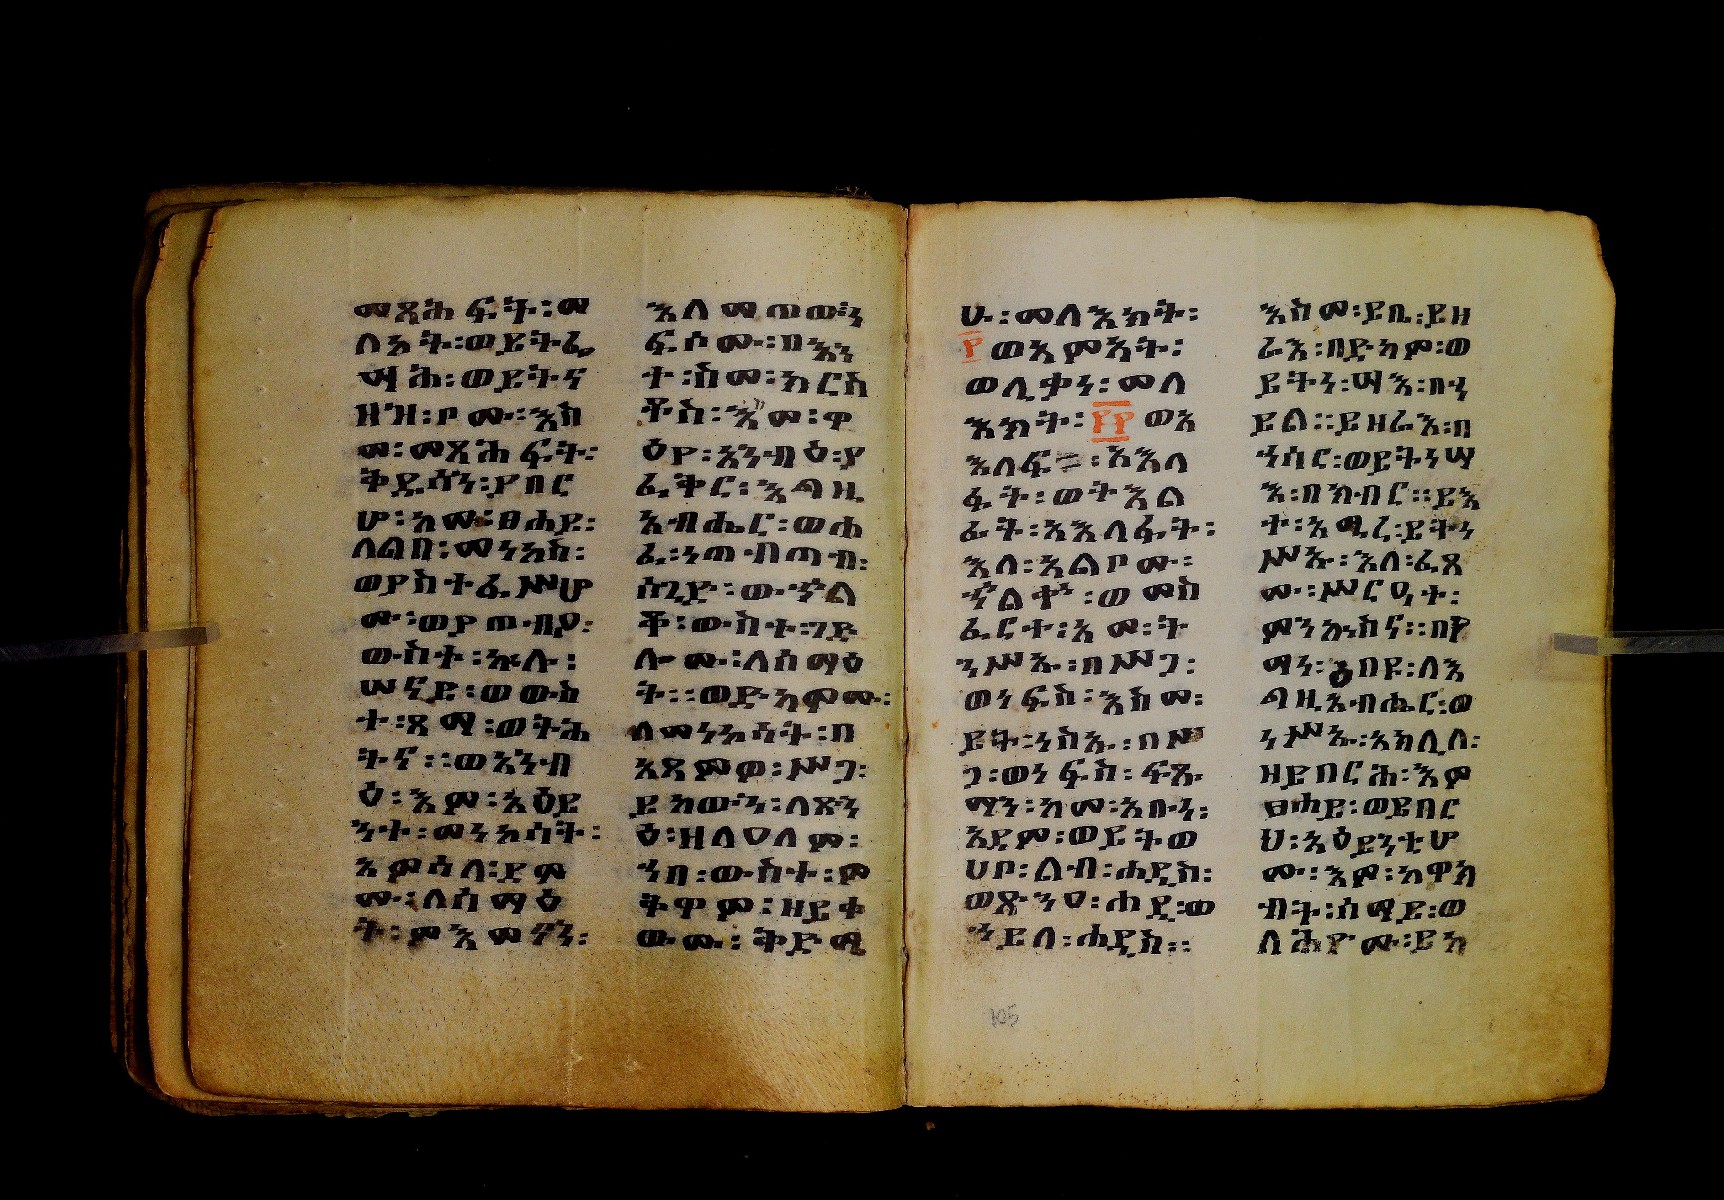 መጻሕፍት፡መ
ላእት፡ወይትፌ
ሣሕ፡ወይትና
ዘዝ፡ቦሙ፡እስ
መ፡መጻሕፍት፡
ቅዱሳን፡ያበር
ሆ፡ከመ፡ፀሐይ፡
ለልበ፡መነኮስ፡
ወያስተፌሥሆ
ሙ፡ወያጠብዖ፡
ውስተ፡ኵሉ፡
ሠናይ፡ወውስ
ተ፡ጻማ፡ወትሕ
ትና፡፡ወአንብ
ዕ፡እም፡አዕይ
ንተ፡መነኮሳት፡
አምሳለ፡ደም
ሙ፡ለሰማዕ
ት፡ምእመናን፡
እለ፡መጠውን
ፍሶሙ፡በእን
ተ፡ስመ፡ክርስ
ቶስ፡እመ፡ዋ
ዕየ፡አንብዕ፡ያ
ፈቅር፡እግዚ
አብሔር፡ወሐ
ፈ፡ነጠብጣብ፡
ሰጊድ፡ውኅል
ቶ፡ውስተ፡ገድ
ሎሙ፡ለሰማዕ
ት፡፡ወድካሞሙ፡
ለመነኮሳት፡በ
አጽምወ፡ሥጋ፡
ይከውን፡ለጽን
ዕ፡ዘለዓለም፡
ኀበ፡ውስተ፡ም
ትዋም፡ዘይቀ
ውሙ፡ቅድሜ
ሁ፡መላእክት፡
፲ወእምአት፡
ወሊቃነ፡መላ
እክት፡፲፻ወእ
እላፍ፡አእላ
ፋት፡ወትእል
ፊት፡አእላፋት፡
እለ፡አልቦሙ፡
ኍልቍ፡ወመስ
ፈርተ፡አመ፡ት
ነሥኡ፡በሥጋ፡
ወነፍስ፡እስመ፡
ይት፡ነስኡ፡በሥ
ጋ፡ወነፍስ፡ፍጹ
ማን፡ከመ፡አቡነ፡
አዳም፡ወይትወ
ሀቦ፡ልብ፡ሐዲስ፡
ወጽንዓ፡ሐዲ፡ወ
ኀይለ፡ሐዲስ፡፡
እስመ፡ይቤ፡ይዘ
ራእ፡በድካም፡ወ
ይትነሣእ፡በኃ
ይል፡፡ይዘራእ፡በ
ኀሳር፡ወይትነሣ
እ፡በክብር፡፡ይእ
ተ፡አሚረ፡ይትነ
ሥኡ፡እለ፡ፈጸ
ሙ፡ሥርዓተ፡
ምንኵስና፡፡በ፻
ማን፡ዕበዩ፡ለእ
ግዚአብሔር፡ወ
ነሥኡ፡አክሊለ፡
ዘይበርሕ፡እም
ፀሐይ፡ወይበር
ህ፡አዕይንቲሆ
ሙ፡እም፡ከዋክ
ብት፡ሰማይ፡ወ
ላሕዮሙ፡ይከ
105